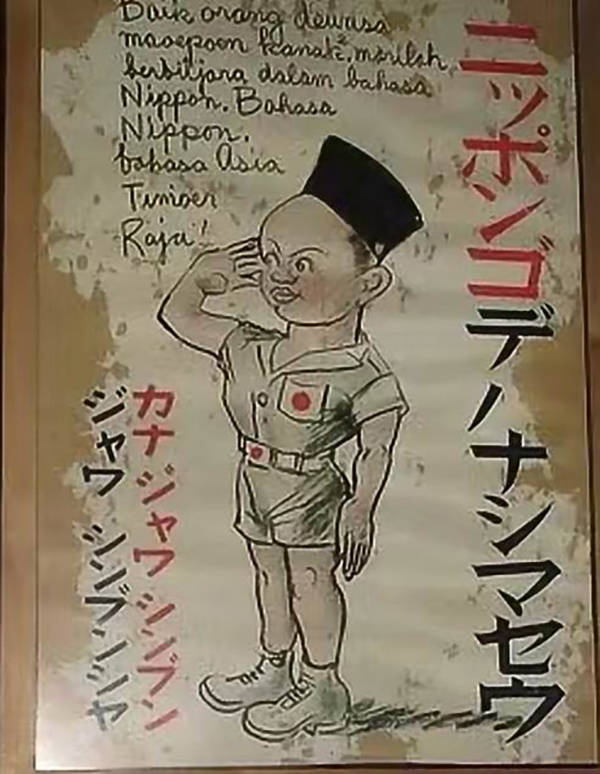 Baik orang dewasa
maoepoen kanak², marilah
berbitjara dalam bahasa
Nippon. Bahasa
Nippon,
bahasa Asia
Timoer
Raja!
ニッポンゴデノナシマセウ
カナ ジャワ シンブン
ジャワ シンブンシャ